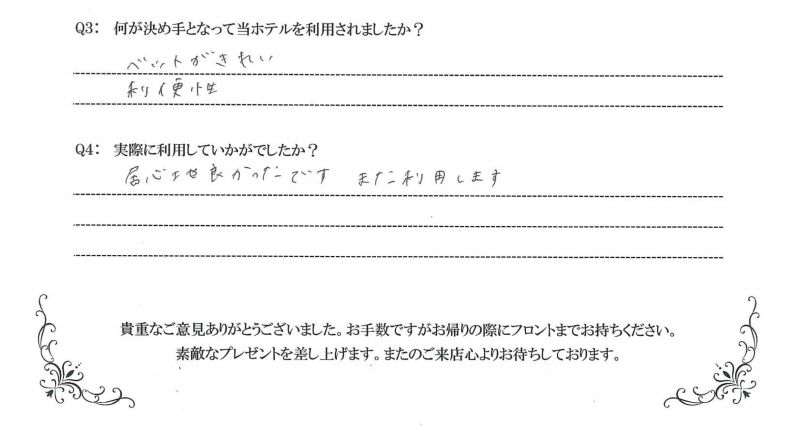 Q3: 何が決め手となって当ホテルを利用されましたか？
ベットがきれい
利便性
Q4: 実際に利用していかがでしたか？
居心地良かったです また利用します
貴重なご意見ありがとうございました。お手数ですがお帰りの際にフロントまでお持ちください。
素敵なプレゼントを差し上げます。またのご来店心よりお待ちしております。